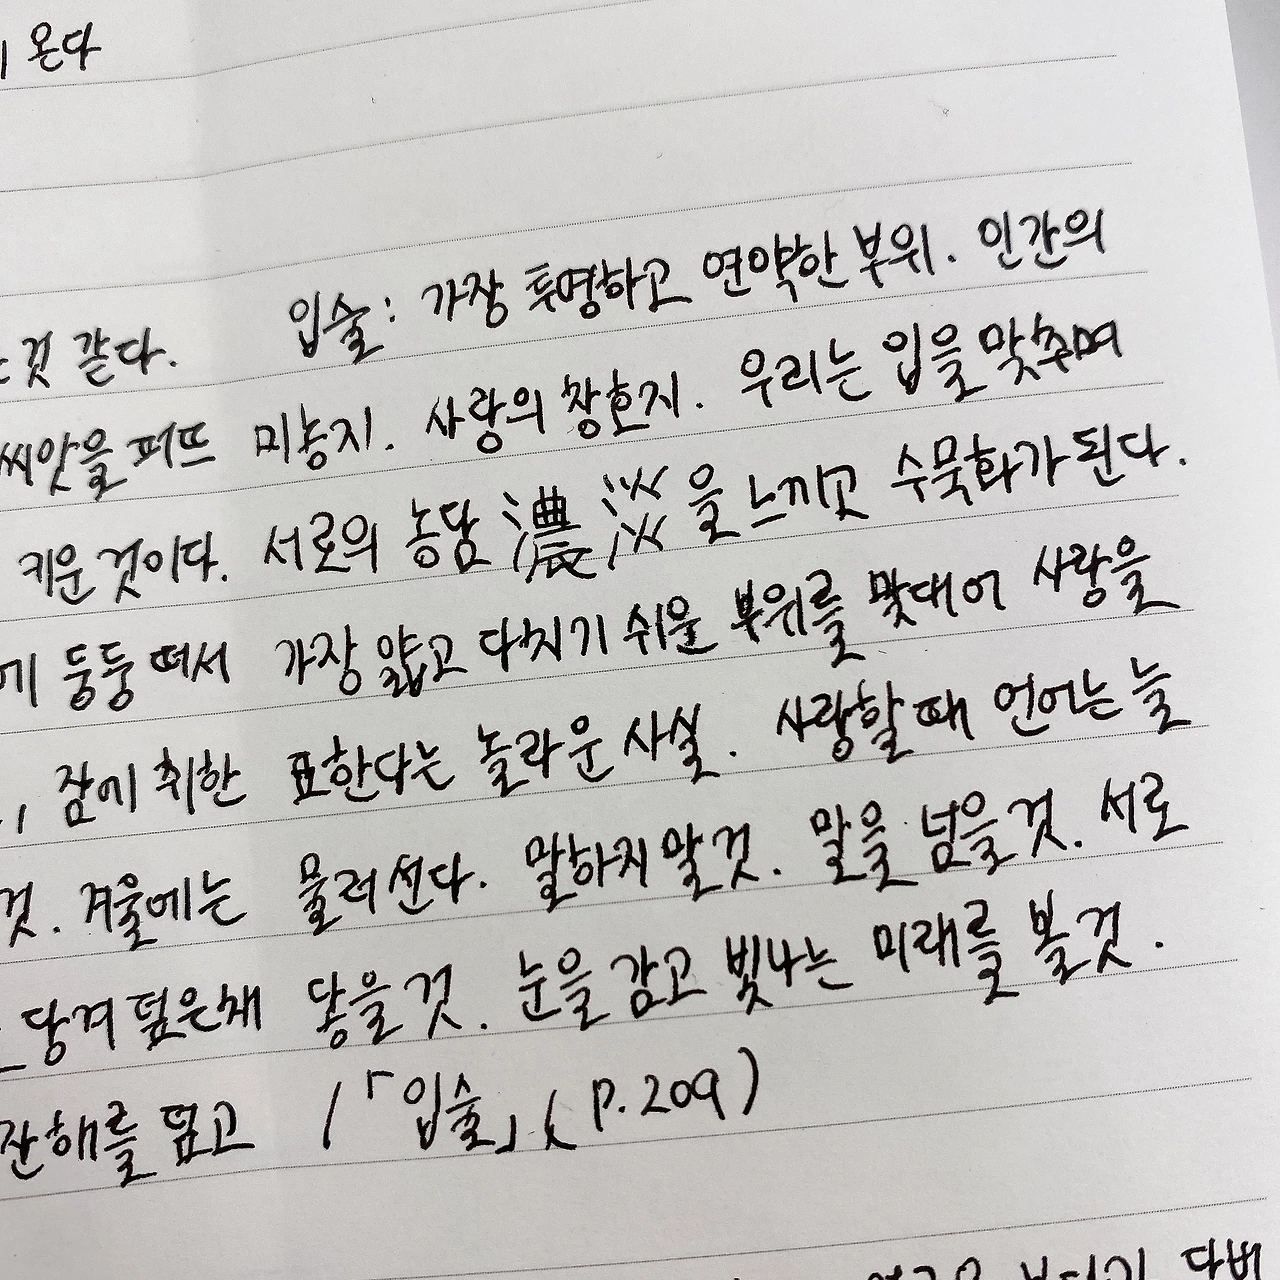 온다
것 같다.
씨앗을 퍼뜨
키운 것이다.
에 둥둥 떠서
, 잠에 취한
것. 겨울에는
당겨 덮은채
잔해를 덮고
입술: 가장 투명하고 연약한 부위. 인간의
미농지. 사랑의 창호지. 우리는 입을 맞추며
서로의 농담 濃淡을 느끼고 수묵화가 된다.
가장 얇고 다치기 쉬운 부위를 맞대어 사랑을
표한다는 놀라운 사실. 사랑할 때 언어는 늘
물러선다. 말하지 말 것. 말을 넘을 것. 서로
닿을 것. 눈을 감고 빛나는 미래를 볼 것.
/「입술」(p.209)